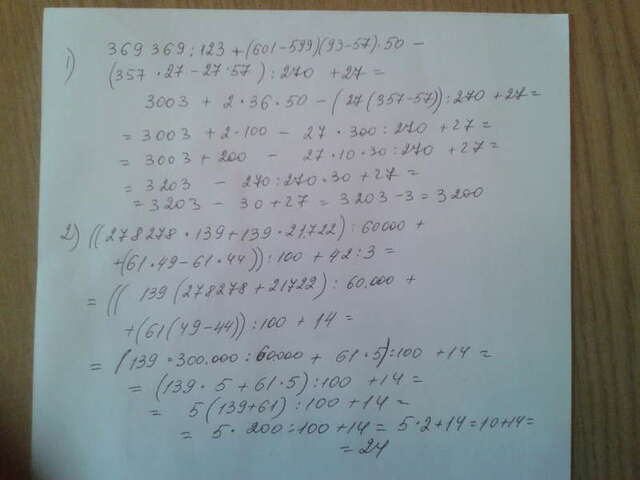 1) 369 369 : 123 + (601 - 599)(93 - 57) · 50 -
(357 · 27 - 27 · 57) : 270 + 27 =
3003 + 2 · 36 · 50 - (27(357 - 57)) : 270 + 27 =
= 3003 + 2 · 100 - 27 · 300 : 270 + 27 =
= 3003 + 200 - 27 · 10 · 30 : 270 + 27 =
= 3203 - 270 : 270 · 30 + 27 =
= 3203 - 30 + 27 = 3203 - 3 = 3200
2) ((278278 · 139 + 139 · 21722) : 60000 +
+(61 · 49 - 61 · 44)) : 100 + 42 : 3 =
= (( 139 (278278 + 21722) : 60.000 +
+ (61 (49 - 44)) : 100 + 14 =
= (139 · 300.000 : 60000 + 61 · 5) : 100 + 14 =
= (139 · 5 + 61 · 5) : 100 + 14 =
= 5 (139 + 61) : 100 + 14 =
= 5 · 200 : 100 + 14 = 5 · 2 + 14 = 10 + 14 =
= 24